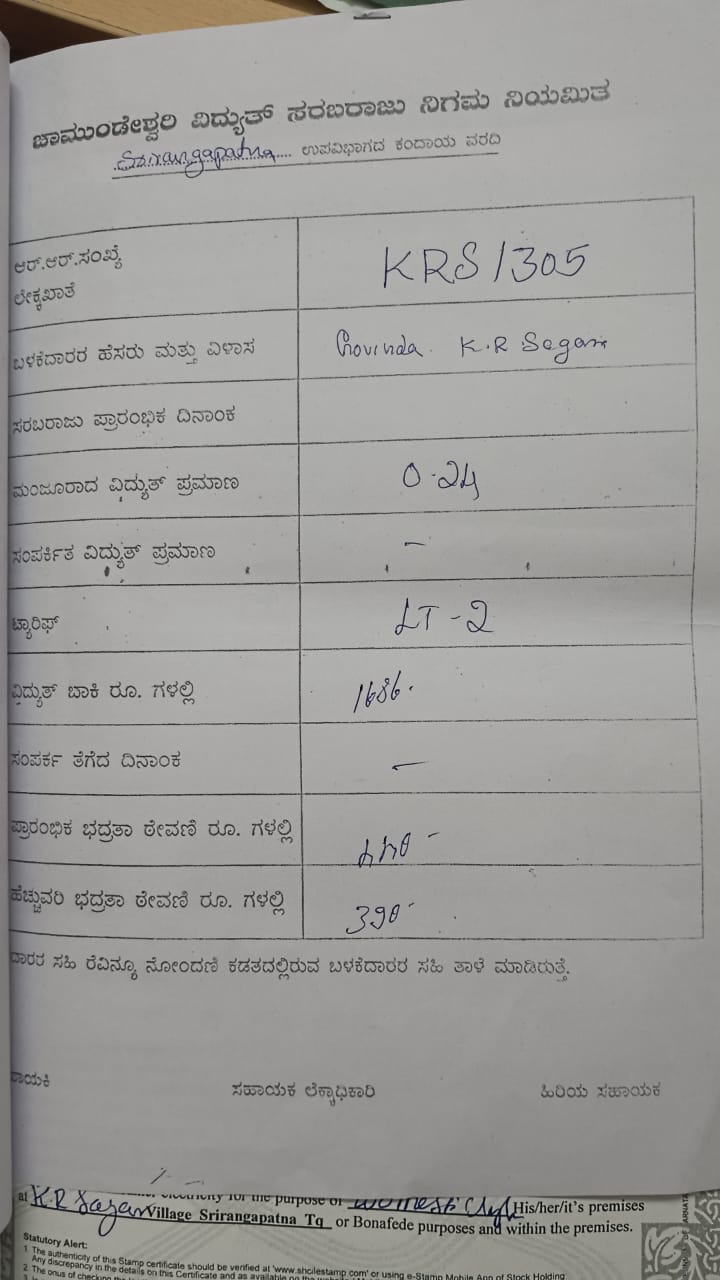 ಚಾಮುಂಡೇಶ್ವರಿ ವಿದ್ಯುತ್ ಸರಬರಾಜು ನಿಗಮ ನಿಯಮಿತ
Srirangapatna.... ಉಪವಿಭಾಗದ ಕಂದಾಯ ವರದಿ
ಆರ್.ಆರ್.ಸಂಖ್ಯೆ
ಲೆಕ್ಕಖಾತೆ
KRS/305
ಬಳಕೆದಾರರ ಹೆಸರು ಮತ್ತು ವಿಳಾಸ
Govinda. K.R Sagar
ಸರಬರಾಜು ಪ್ರಾರಂಭಿಕ ದಿನಾಂಕ
ಮಂಜೂರಾದ ವಿದ್ಯುತ್ ಪ್ರಮಾಣ
0.24
ಸಂಪರ್ಕಿತ ವಿದ್ಯುತ್ ಪ್ರಮಾಣ
-
ಟ್ಯಾರಿಫ್
LT-2
ವಿದ್ಯುತ್ ಬಾಕಿ ರೂ. ಗಳಲ್ಲಿ
1686.
ಸಂಪರ್ಕ ತೆಗೆದ ದಿನಾಂಕ
-
ಪ್ರಾರಂಭಿಕ ಭದ್ರತಾ ಠೇವಣಿ ರೂ. ಗಳಲ್ಲಿ
ಹೆಚ್ಚುವರಿ ಭದ್ರತಾ ಠೇವಣಿ ರೂ. ಗಳಲ್ಲಿ
390-
ದಾರರ ಸಹಿ ರೆವಿನ್ಯೂ ನೋಂದಣಿ ಕಡತದಲ್ಲಿರುವ ಬಳಕೆದಾರರ ಸಹಿ ತಾಳೆ ಮಾಡಿರುತ್ತೆ.
ಸಹಾಯಕ ಲೆಕ್ಕಾಧಿಕಾರಿ
ಹಿರಿಯ ಸಹಾಯಕ
electricity for the purpose of His/her/it's premises
at K.R Sagar Village Srirangapatna Tq or Bonafede purposes and within the premises.
Statutory Alert:
1. The authenticity of this Stamp certificate should be verified at 'www.shcilestamp.com' or using e-Stamp Mobile App of Stock Holding
Any discrepancy in the details on this Certificate and as available on the
2. The onus of checking the